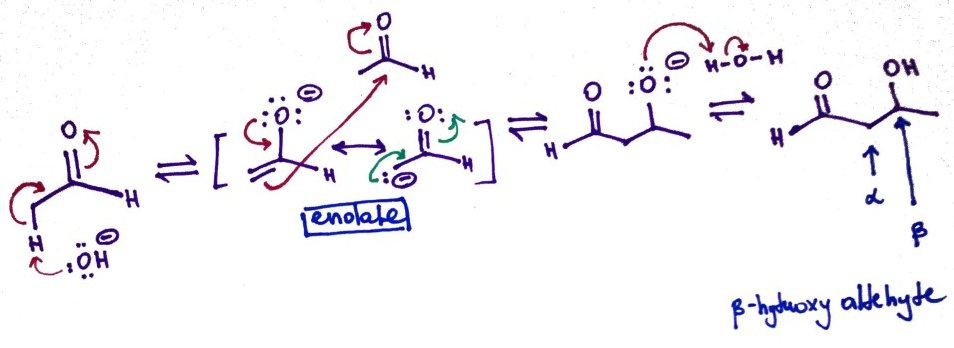 O
H
H
:ÖH ⊖
⇌
[
:Ö: ⊖
H
↔
:O:
H
:⊖
]
enolate
O
H
⇌
O
H
:Ö: ⊖
H-O-H
⇌
O
H
OH
α
β
β-hydroxy aldehyte